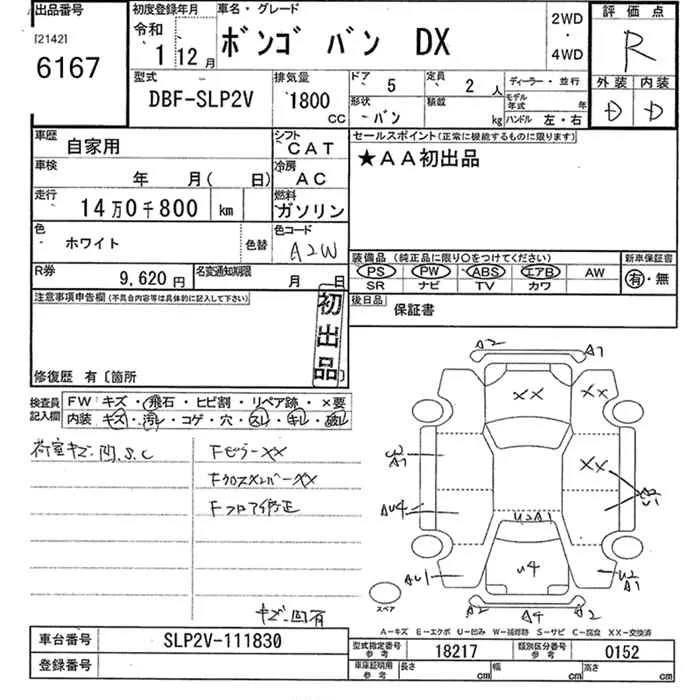 出品番号
[2142]
6167
初度登録年月
令和
1 12 月
車名・グレード
ボンゴ バン DX
2WD
・
4WD
評価点
R
外装 内装
D D
型式
DBF-SLP2V
排気量
1800
CC
ドア 5
定員 2 人
形状 -バン
積載 kg
ディーラー・並行
モデル年式 年
ハンドル 左・右
車歴
自家用
シフト
CAT
車検
年 月( 日)
冷房
AC
走行
14万0千800 km
燃料
ガソリン
色
ホワイト
色替
色コード
A2W
R券
9,620円
名変通知期限
月 日
セールスポイント(正常に機能するものに限ります)
★AA初出品
装備品 (純正品に限り○をつけてください)
PS PW ABS エアB AW
SR ナビ TV カワ
新車保証書
有・無
後日品
保証書
注意事項申告欄(不具合内容等は具体的に記入して下さい)
初出品
修復歴 有〔箇所
検査員記入欄
FW キズ・飛石・ヒビ割・リペア跡・×要
内装 キズ・汚レ・コゲ・穴・スレ・キレ・破レ
荷室キズ・凹.S.C
Fピラー××
Fクロスメンバー××
Fフロア修正
キズ・凹有
A2 A1
×× ××
U2 A1
××
A2 U1
AU4
U2A1
U4
AU1
U2 A1
A2 A4 A2
スペア
A-キズ E-エクボ U-凹み W-補修跡 S-サビ C-腐食 XX-交換済
車台番号
SLP2V-111830
登録番号
型式指定番号 参考
18217
類別区分番号 参考
0152
車庫証明用 参考
長さ cm 幅 cm 高さ cm